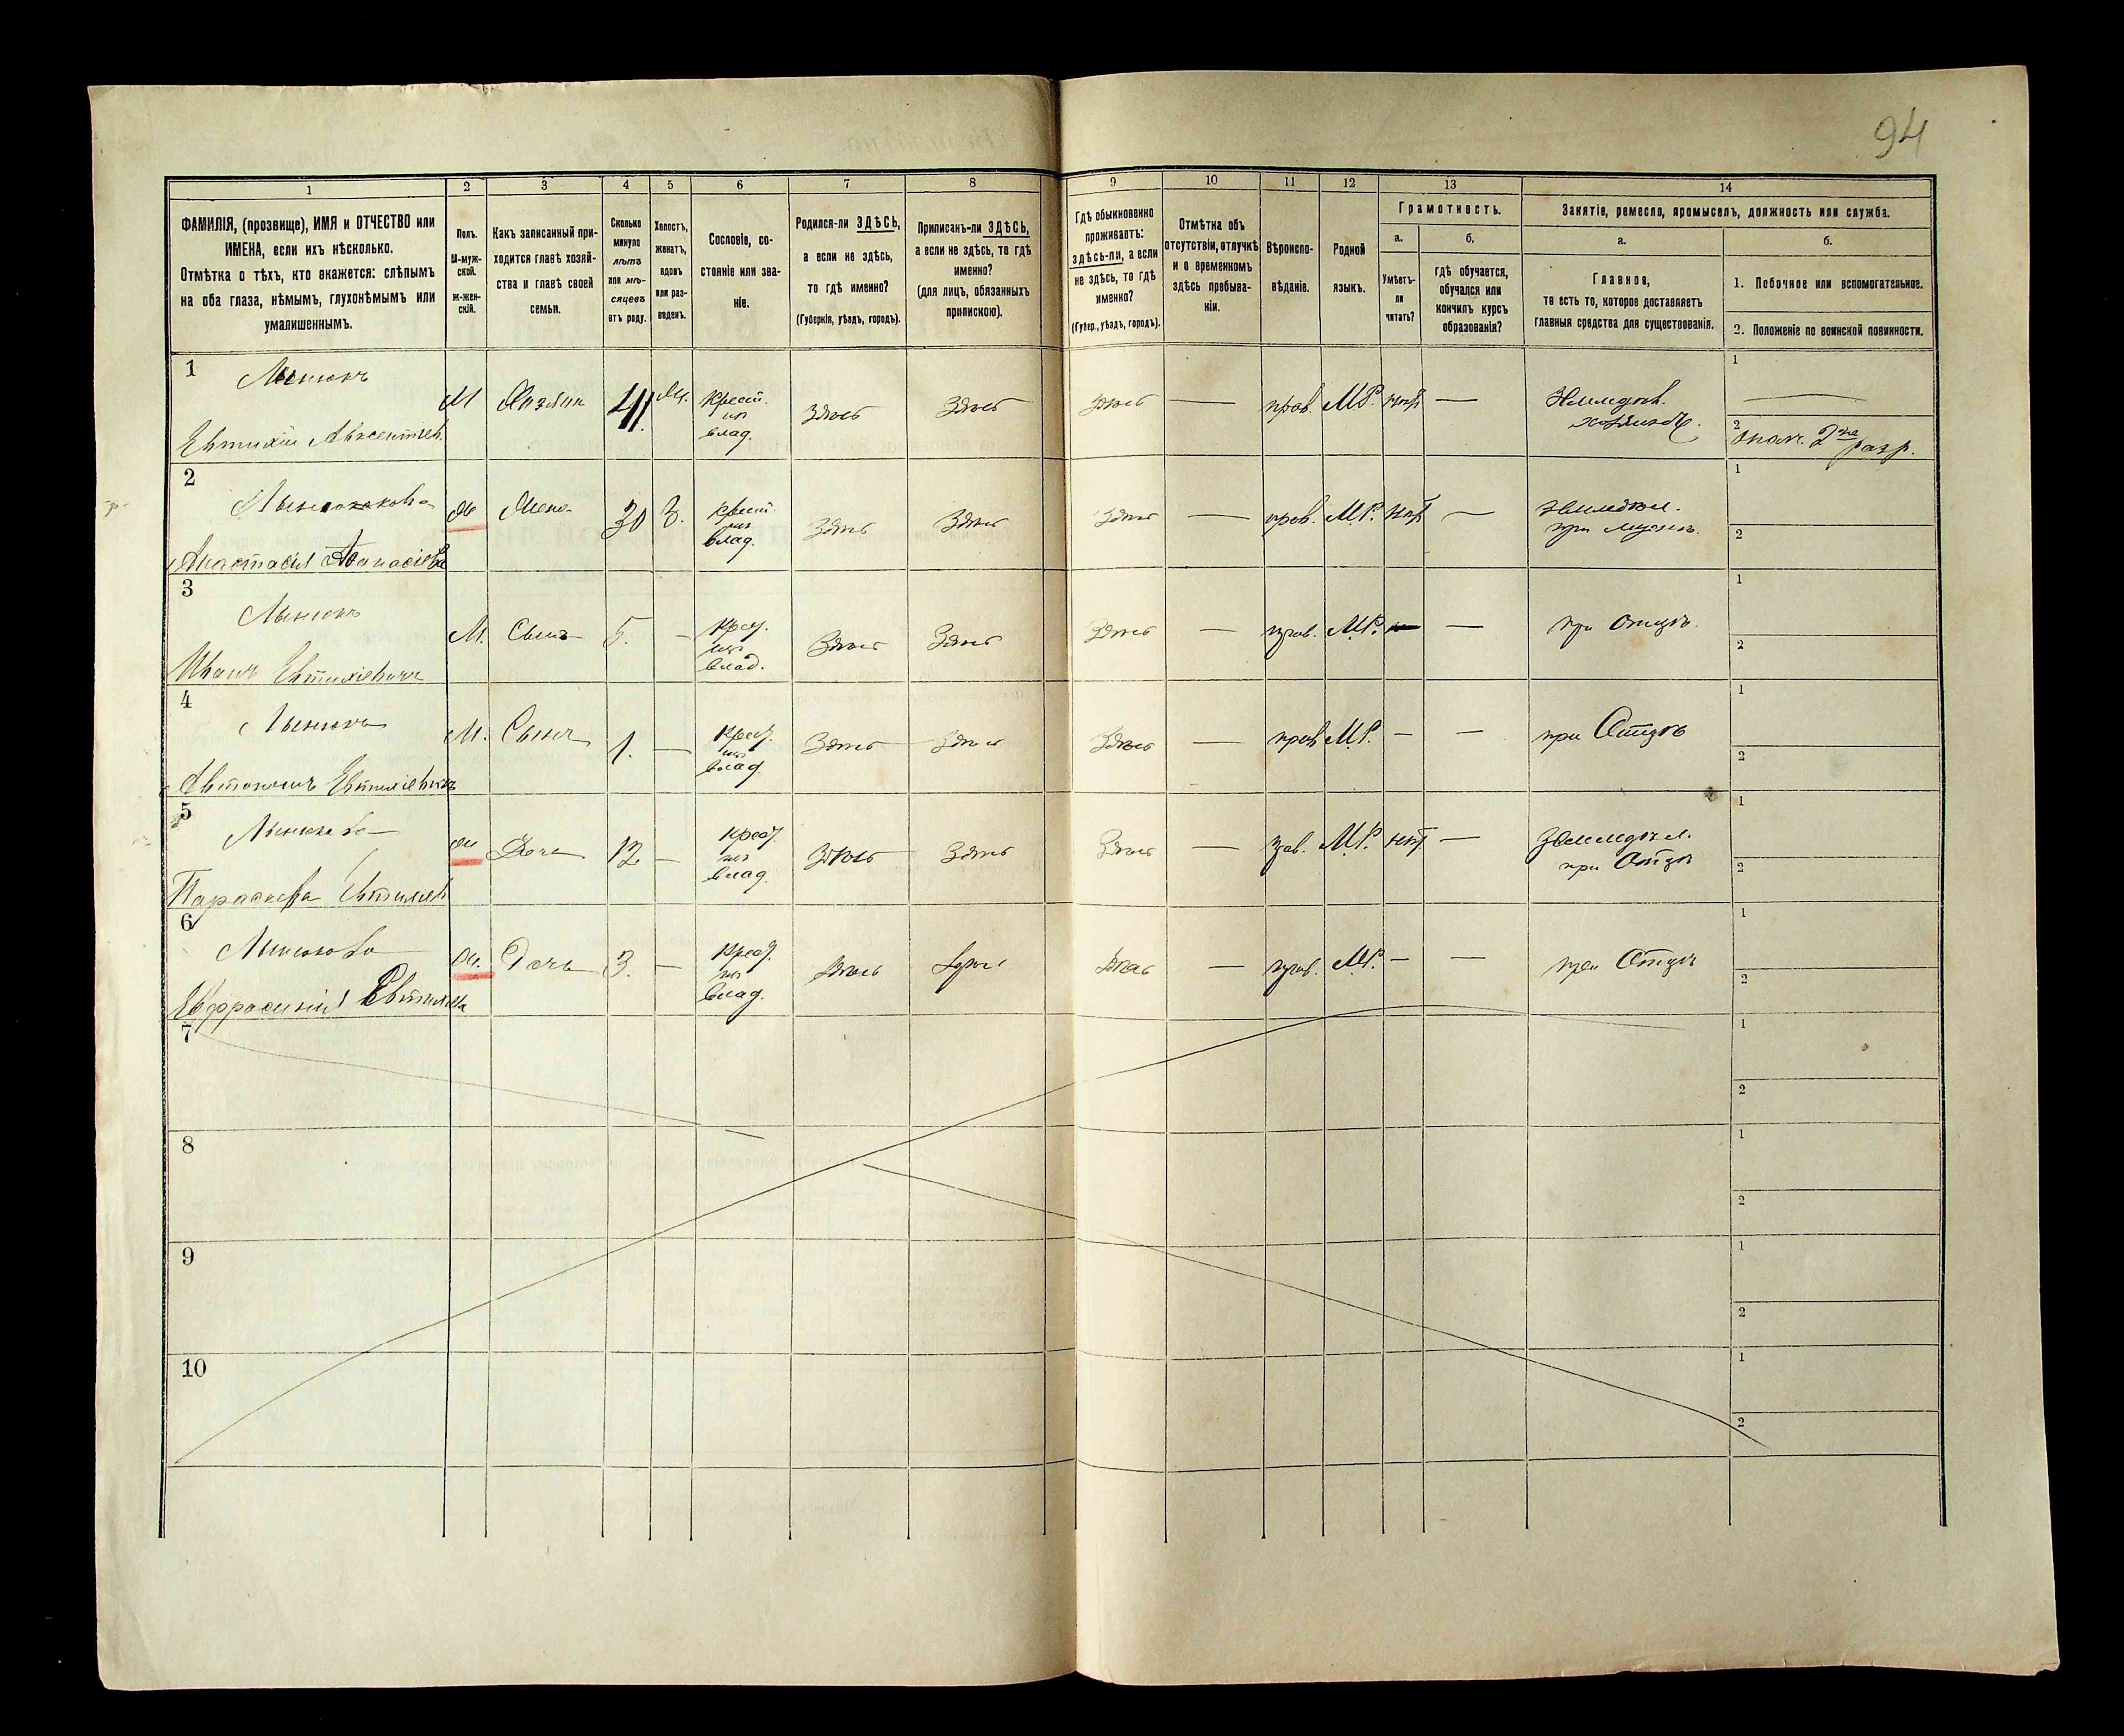 94
1
2
3
4
5
6
7
8
9
10
11
12
13
14
ФАМИЛІЯ, (прозвище), ИМЯ и ОТЧЕСТВО или
ИМЕНА, если ихъ нѣсколько.
Отмѣтка о тѣхъ, кто окажется: слѣпымъ
на оба глаза, нѣмымъ, глухонѣмымъ или
умалишеннымъ.
Полъ.
М-муж-
ской.
Ж-жен-
скій.
Какъ записанный при-
ходится главѣ хозяй-
ства и главѣ своей
семьи.
Сколько
минуло
лѣтъ
или мѣ-
сяцевъ
отъ роду.
Холостъ,
женатъ,
вдовъ
или раз-
веденъ.
Сословіе, со-
стояніе или зва-
ніе.
Родился-ли ЗДѢСЬ,
а если не здѣсь,
то гдѣ именно?
(Губернія, уѣздъ, городъ).
Приписанъ-ли ЗДѢСЬ,
а если не здѣсь, то гдѣ
именно?
(для лицъ, обязанныхъ
припискою).
Гдѣ обыкновенно
проживаетъ:
здѣсь-ли, а если
не здѣсь, то гдѣ
именно?
(Губер., уѣздъ, городъ).
Отмѣтка объ
отсутствіи, отлучкѣ
и о временномъ
здѣсь пребыва-
ніи.
Вѣроиспо-
вѣданіе.
Родной
языкъ.
Грамотность.
а.
Умѣетъ-
ли
читать?
б.
гдѣ обучается,
обучался или
кончилъ курсъ
образованія?
Занятіе, ремесло, промыселъ, должность или служба.
а.
Главное,
то есть то, которое доставляетъ
главныя средства для существованія.
б.
1. Побочное или вспомогательное.
2. Положеніе по воинской повинности.
1
Евтихій Авксентіев.
М
Хазяин
41
крест.
из
влад.
здѣсь
здѣсь
здѣсь
—
прав.
М.Р.
нѣт
—
1
—
2
ополч. 2го разр.
2
Анастасія Афанасіева
Жена
30
З.
крест.
из
влад.
здѣсь
здѣсь
здѣсь
—
прав.
М.Р.
нѣт
—
земледѣл.
при мужѣ.
1
2
3
Иванъ Евтихіевичъ
М.
Сынъ
5.
—
крест.
из
влад.
здѣсь
здѣсь
здѣсь
—
прав.
М.Р.
—
—
при отцѣ.
1
2
4
Автономъ Евтихіевичъ
М.
Сынъ
1.
—
крест.
из
влад.
здѣсь
здѣсь
здѣсь
—
прав.
М.Р.
—
—
при Отцѣ
1
2
5
Параскева Евтихіев
Дочь
12
—
крест.
из
влад.
здѣсь
здѣсь
здѣсь
—
прав.
М.Р.
нѣт
—
земледѣл.
при Отцѣ
1
2
6
Евфросинія Евтихіева
Дочь
3.
—
крест.
из
влад.
здѣсь
здѣсь
здѣсь
—
прав.
М.Р.
—
—
при Отцѣ
1
2
7
1
2
8
1
2
9
1
2
10
1
2